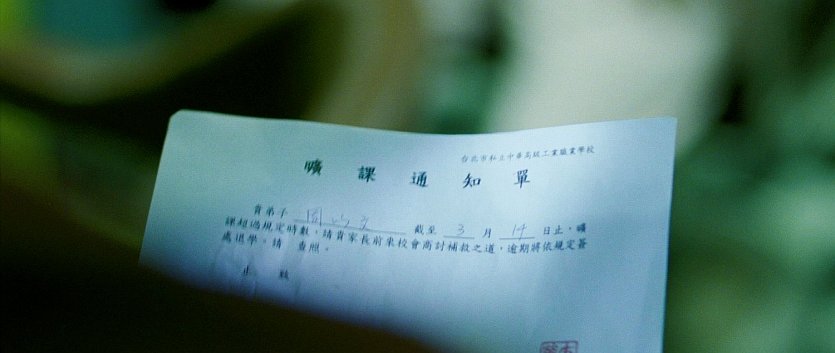 台北市私立中華高級工業職業學校
曠課通知單
貴弟子 周 截至 3 月 14 日止,曠
課超過規定時數,請貴家長前來校會商討補救之道,逾期將依規定簽
處退學。請 查照。
此 致